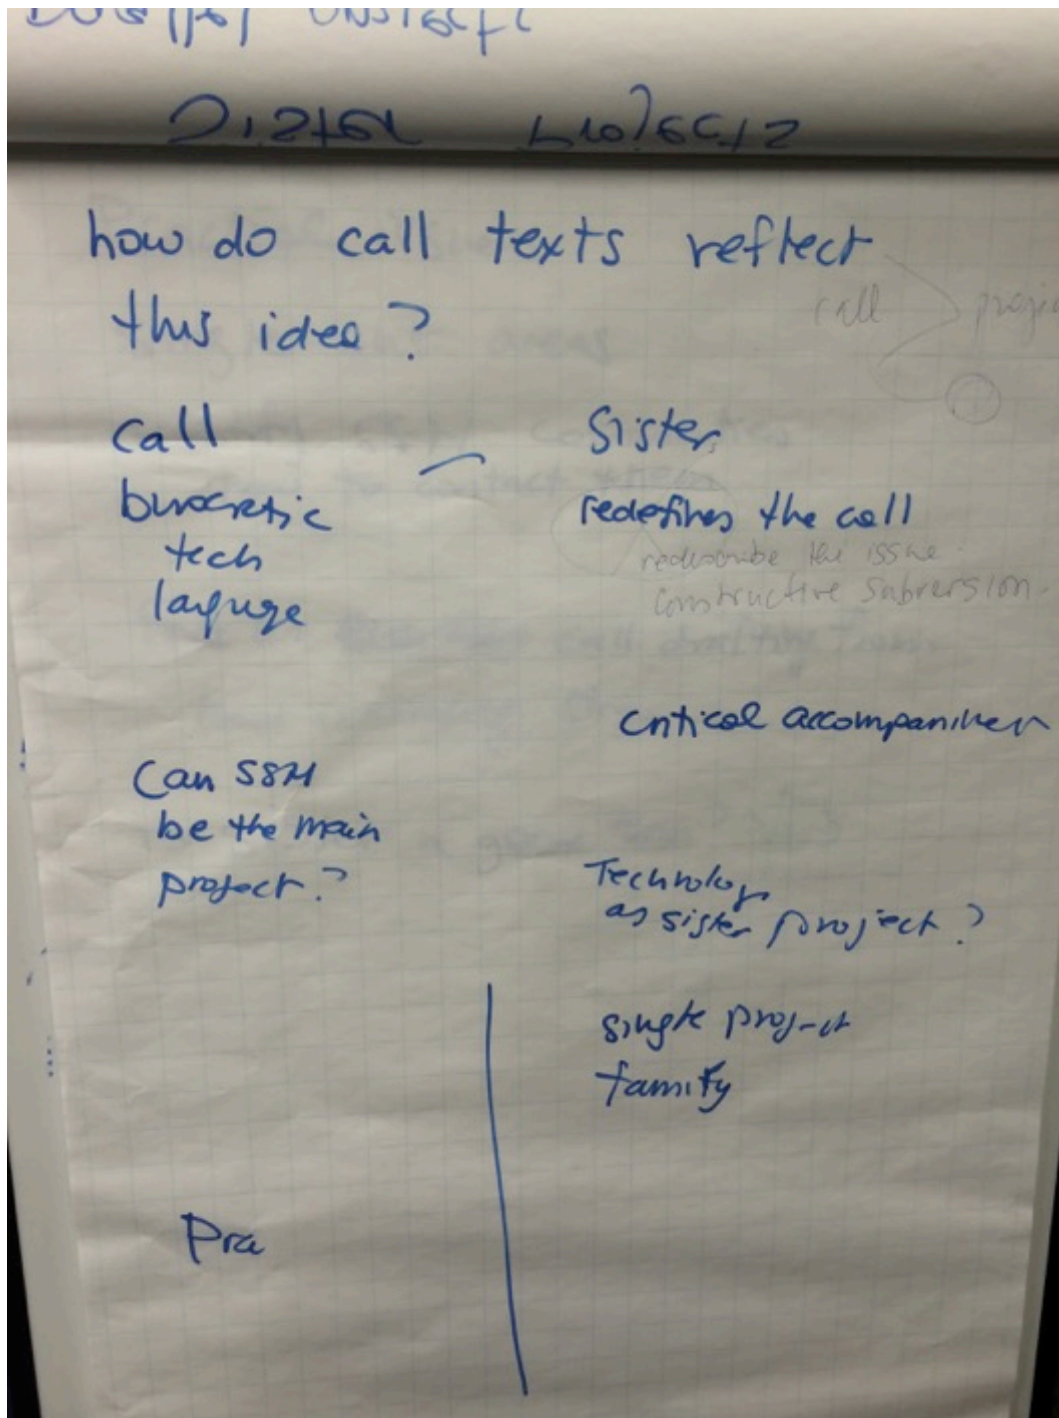 how do call texts reflect
this idea?
call
call
burocratic
tech
laguage
Sister
redefines the call
redescribe the issue
constructive subversion.
critical accompanimen
Can SSH
be the main
project?
Technology
as sister project?
single project
family
Pra